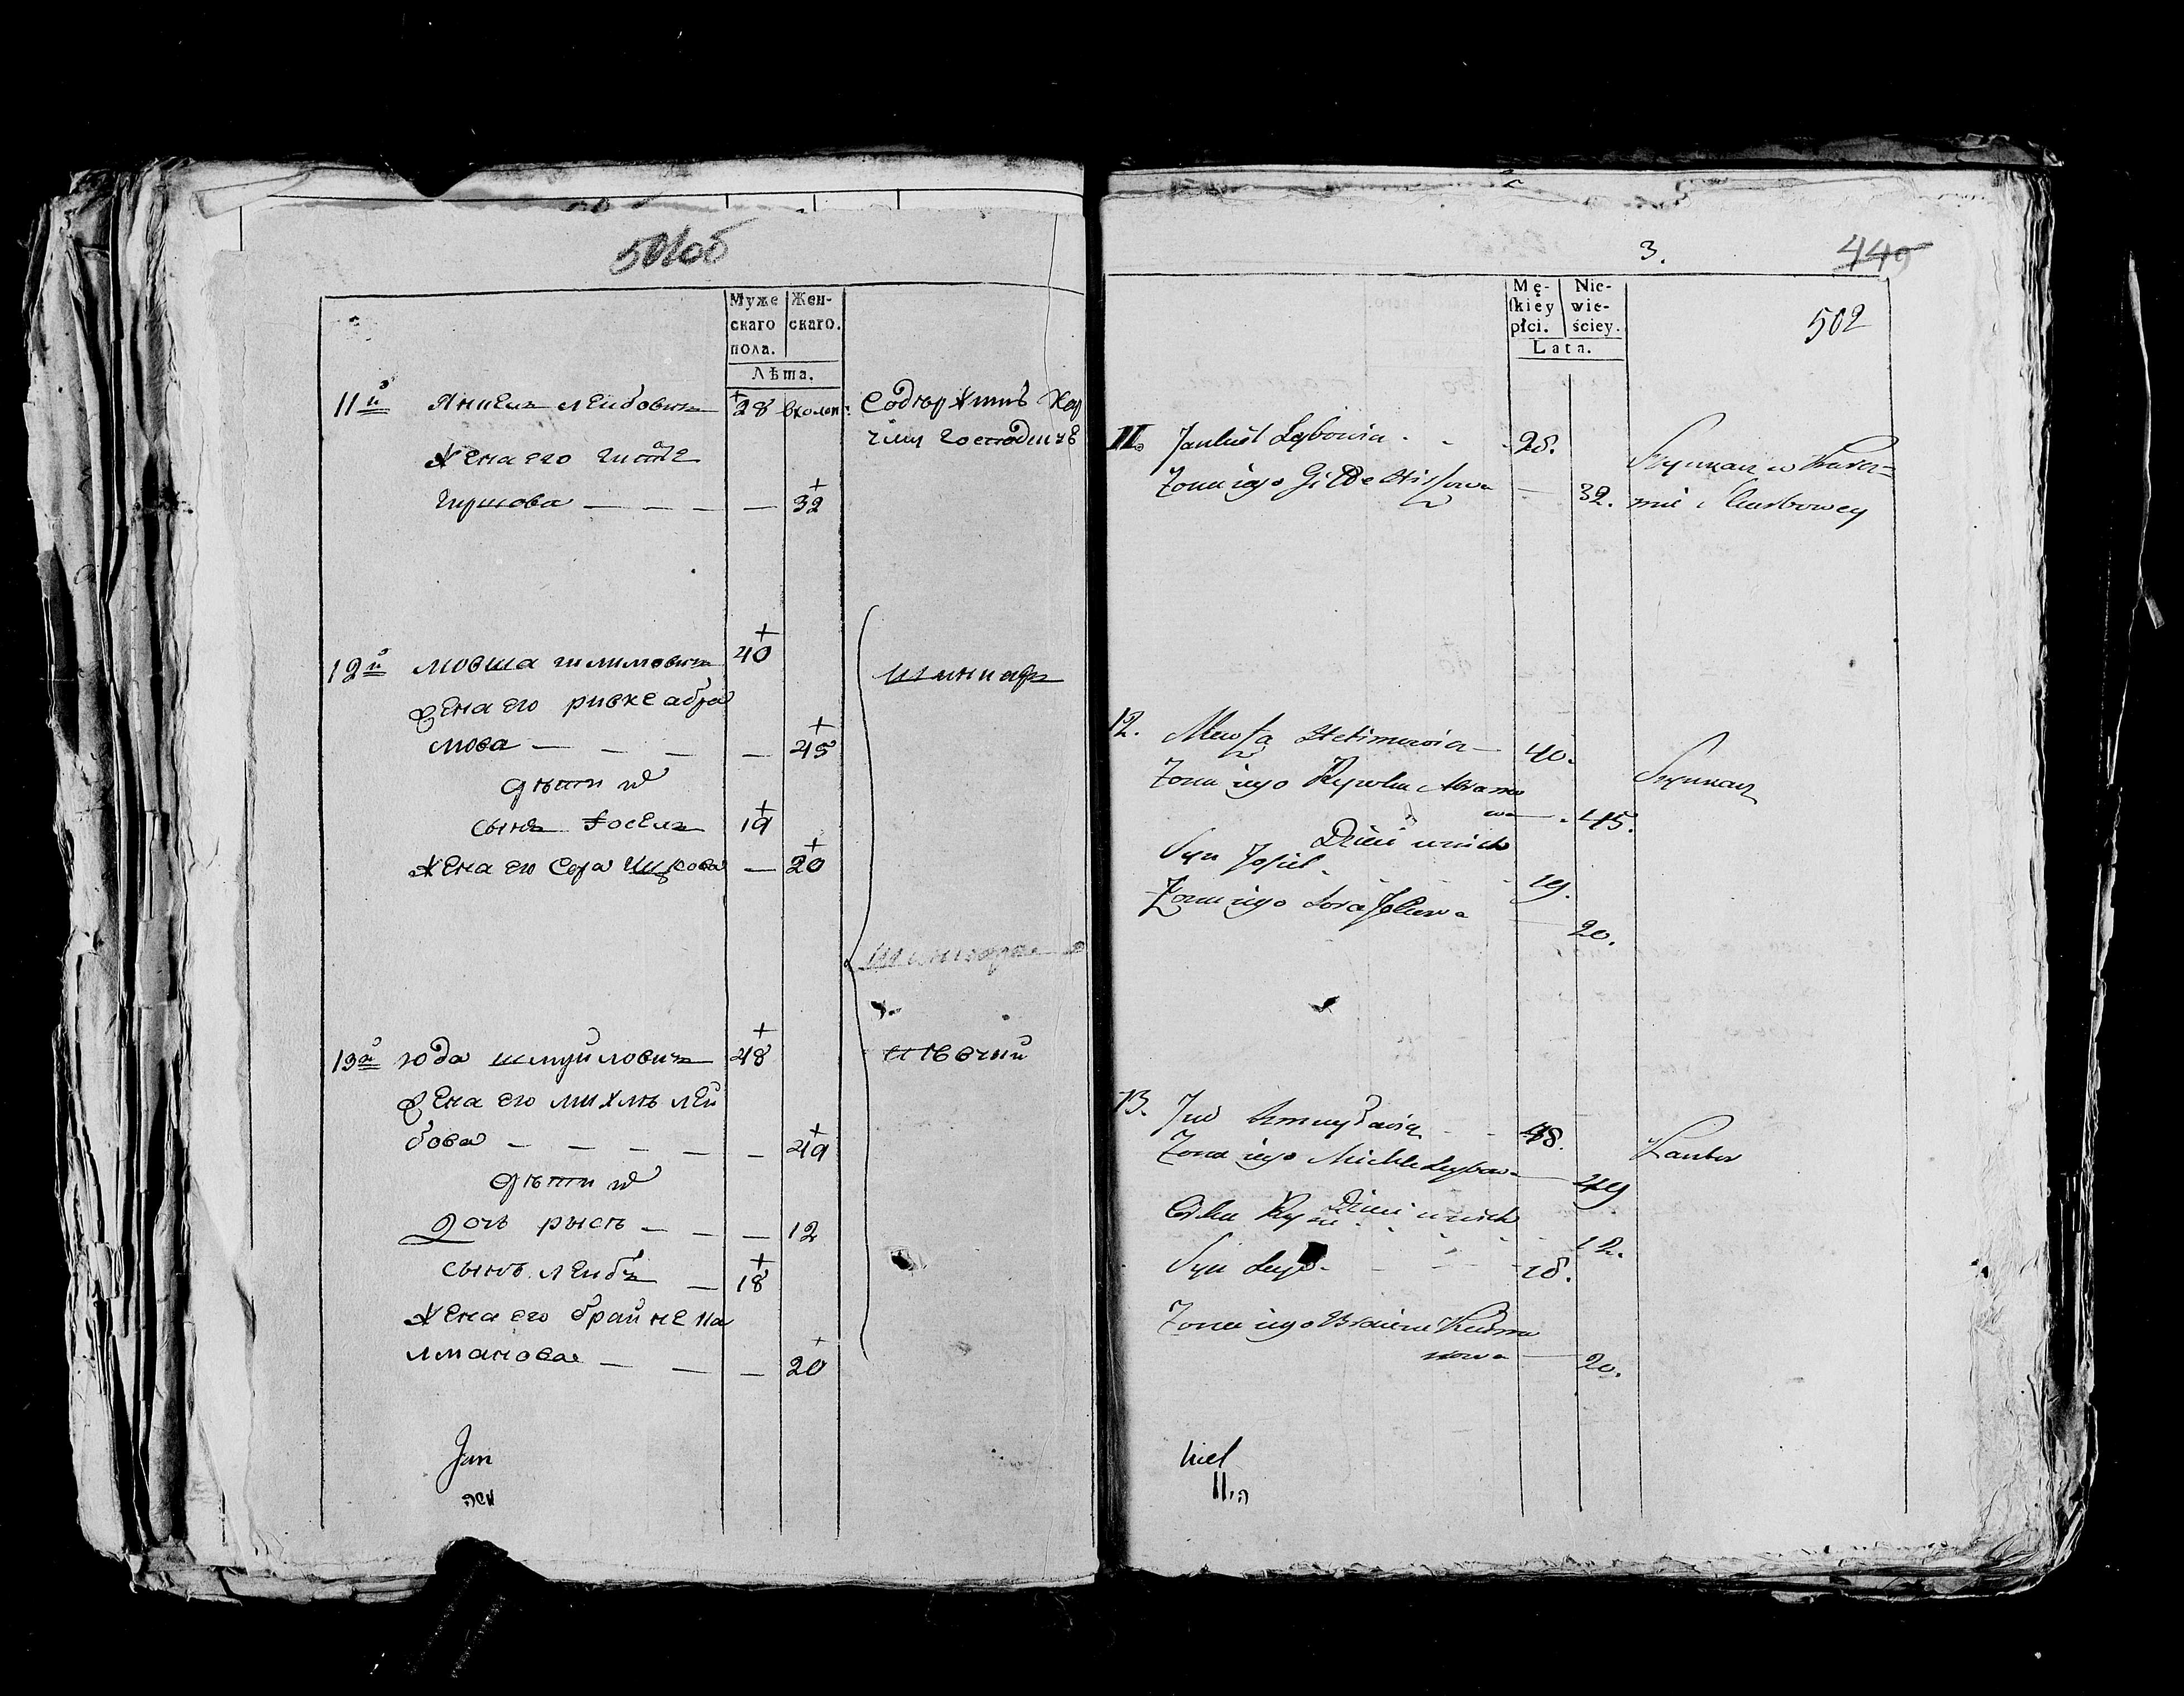 501об
Муже
скаго
пола.
Жен-
скаго.
Лѣта.
11й Янкель Лейбовичъ 28
Содержитъ кар
Жена его Гитле
Гиршова — — — — 32
12й Мовша Шлимовичъ 40
Шинкарь
Жена его Ривке Абра
мова — — — — 45
дѣти
сынъ Іосель 19
Жена его Сора Ицкова — 20
13й Юда Шмуйловичъ 48
Жена его Михле Лей
бова — — — — — 49
дѣти
дочь Рысе — — — 12
сынъ Лейба — 18
Жена его Брайне Ка
лманова — — — 20
Jan
3.
449
502
Mę-
ſkiey
płci.
Nie-
wie-
ściey.
Lata.
II. Jankiel Leybowicz 28.
Szynkarz w Karcz=
Zona iego Gitte Hirszowa — 32.
mie Skarbowey
12. Mowsza 40.
Szynkarz
Zona iego Rywka Abramo
wa — 45.
Dzieci u nich
Syn Josiel 19.
Zona iego Sora Jckowa — 20.
13. Jud Szmuylowicz 48.
Kantor
Zona iego Michle Leybow — 49
Dzieci u nich
Corka Rysie 12.
Syn Leyb — 18.
Zona iego Braiena Kalma
nowa — 20.
kiel